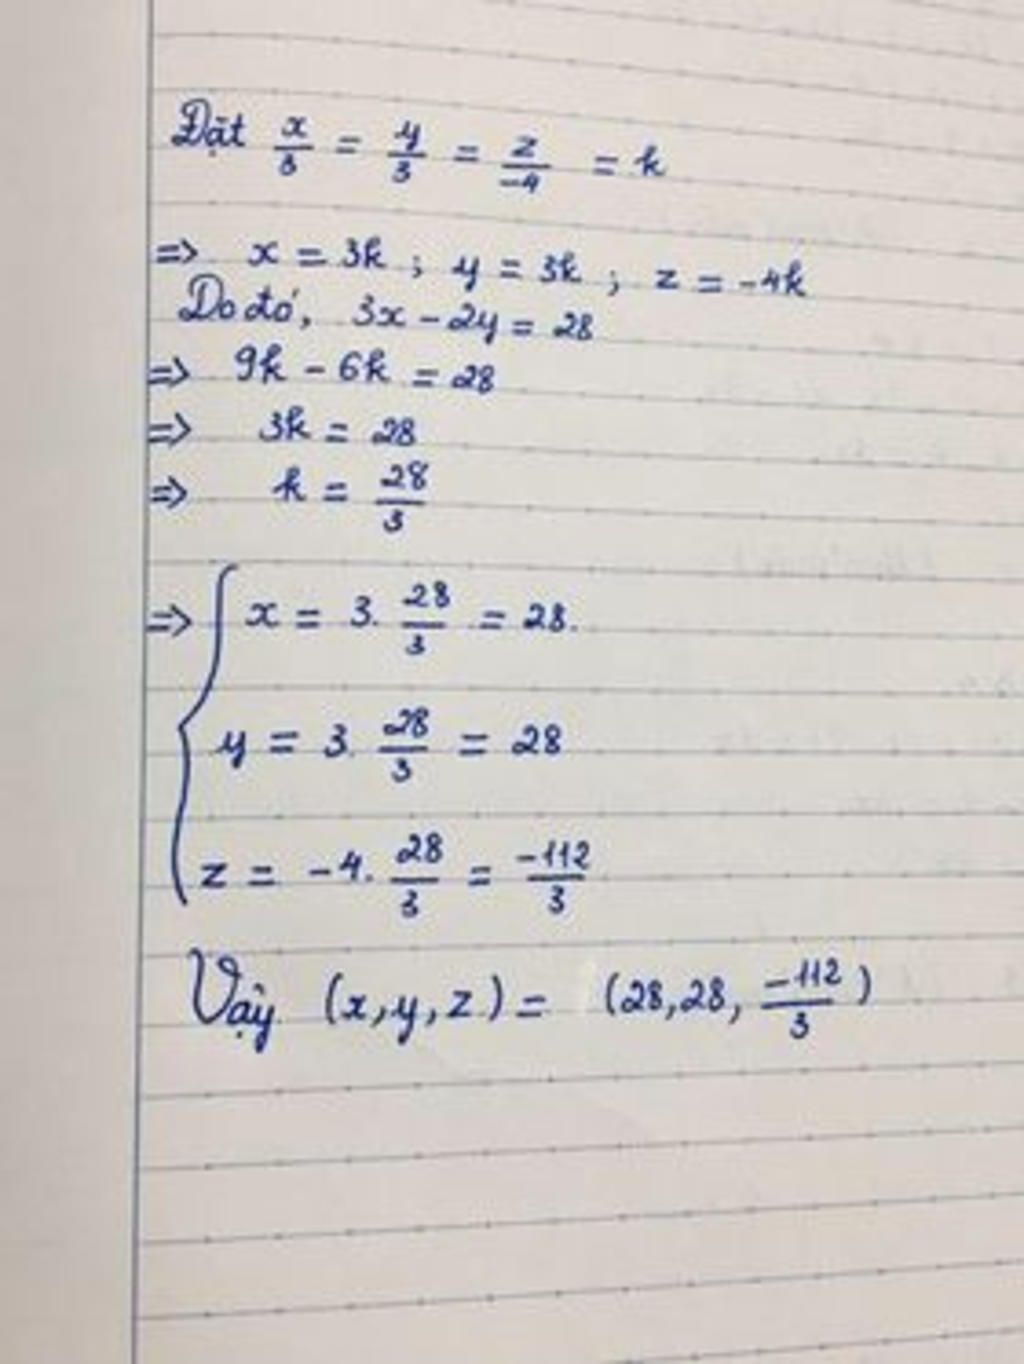 Đặt x/3 = y/3 = z/-4 = k
=> x = 3k ; y = 3k ; z = -4k
Do đó, 3x - 2y = 28
=> 9k - 6k = 28
=> 3k = 28
=> k = 28/3
=> { x = 3. 28/3 = 28.
y = 3. 28/3 = 28
z = -4. 28/3 = -112/3
Vậy (x,y,z) = (28,28, -112/3)